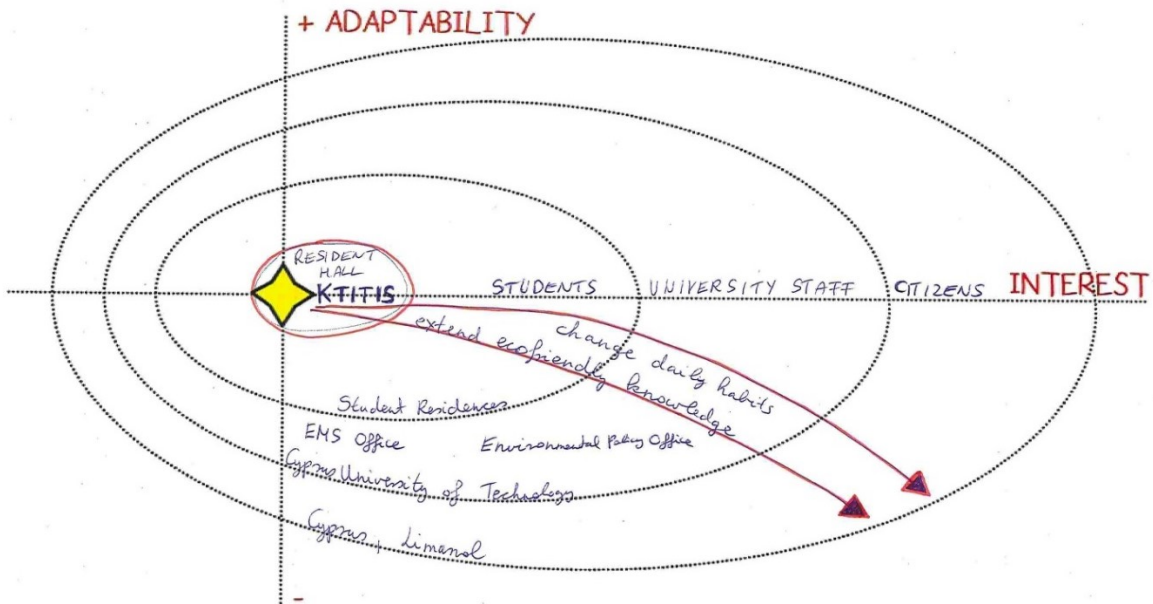 + ADAPTABILITY
RESIDENT
HALL
KTITIS
STUDENTS
UNIVERSITY STAFF
CITIZENS
INTEREST
change daily habits
extend ecofriendly knowledge
Student Residences
EMS Office
Environmental Policy Office
Cyprus University of Technology
Cyprus, Limassol
-